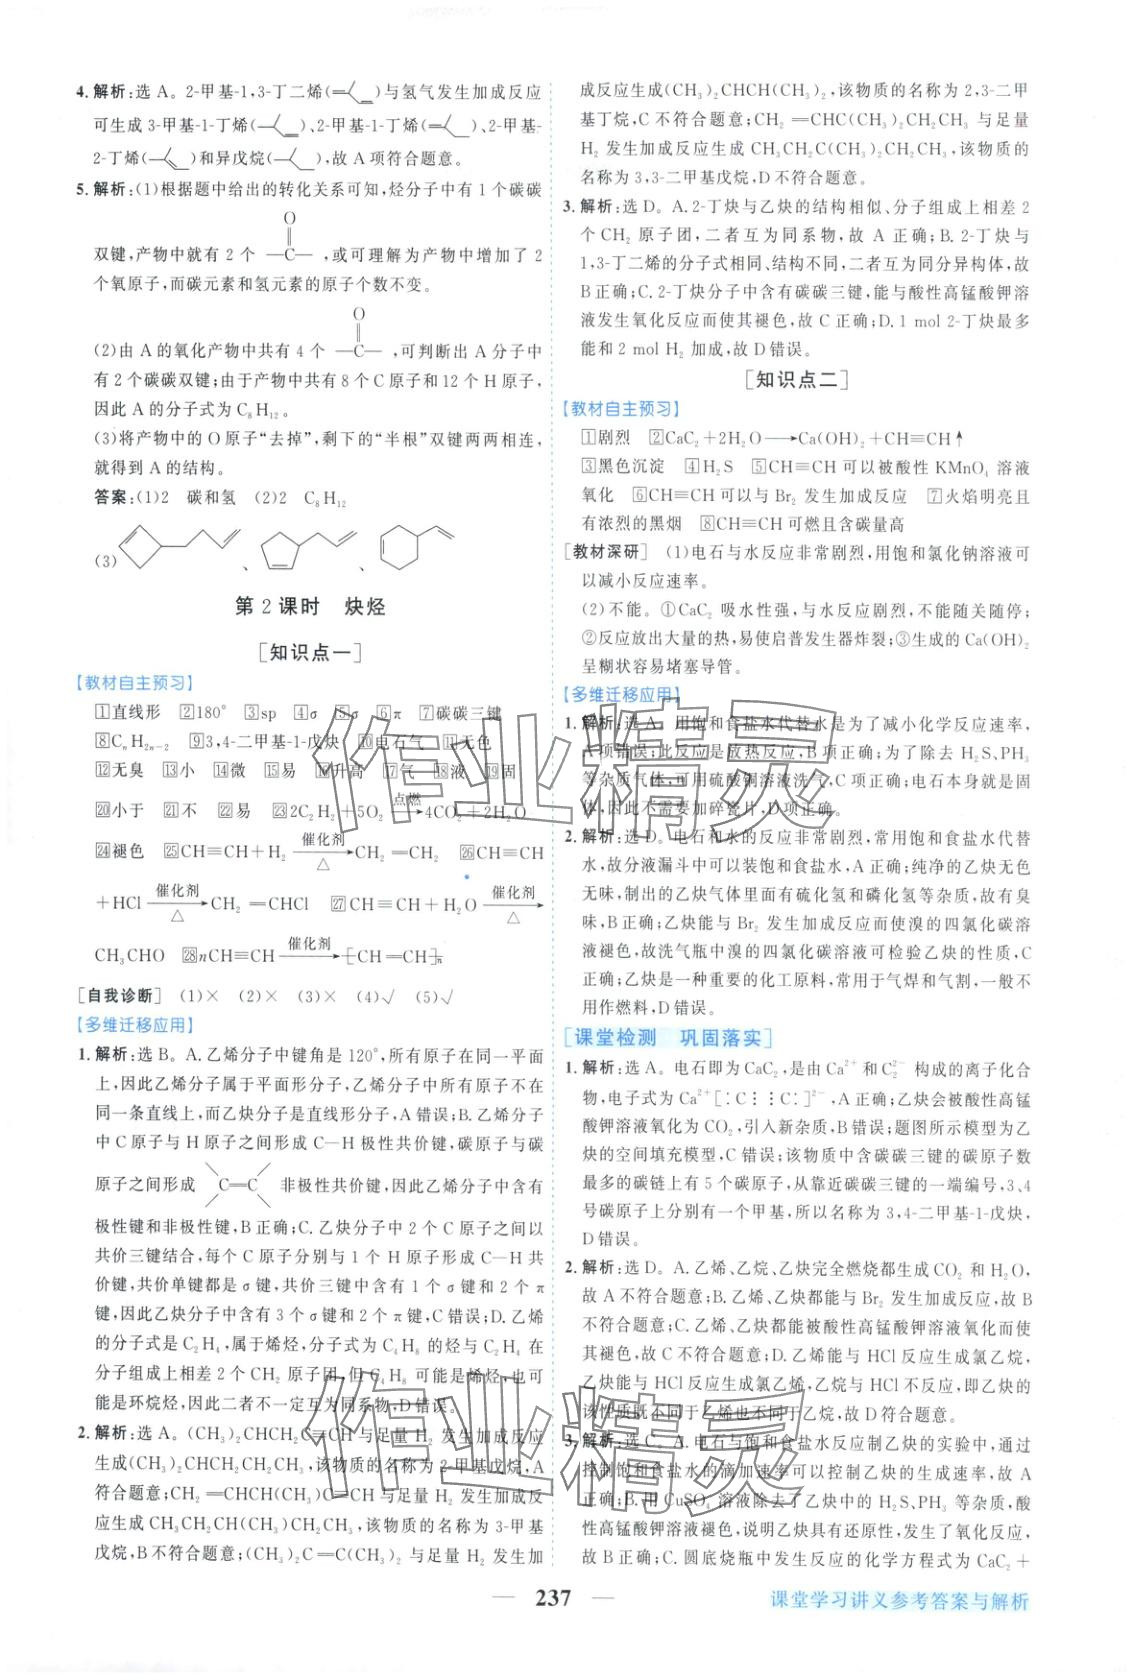 4. 解析:选 A。2-甲基-1,3-丁二烯( )与氢气发生加成反应
可生成 3-甲基-1-丁烯( )、2-甲基-1-丁烯( )、2-甲基-
2-丁烯( )和异戊烷( ),故 A 项符合题意。
5. 解析:(1)根据题中给出的转化关系可知,烃分子中有 1 个碳碳
双键,产物中就有 2 个 —C(=O)— ,或可理解为产物中增加了 2
个氧原子,而碳元素和氢元素的原子个数不变。
(2)由 A 的氧化产物中共有 4 个 —C(=O)—,可判断出 A 分子中
有 2 个碳碳双键;由于产物中共有 8 个 C 原子和 12 个 H 原子,
因此 A 的分子式为 C₈H₁₂。
(3)将产物中的 O 原子“去掉”,剩下的“半根”双键两两相连,
就得到 A 的结构。
答案:(1)2 碳和氢 (2)2 C₈H₁₂
(3) 、 、
第 2 课时 炔烃
[知识点一]
【教材自主预习】
①直线形 ②180° ③sp ④σ ⑤σ ⑥π ⑦碳碳三键
⑧CₙH₂ₙ₋₂ ⑨3,4-二甲基-1-戊炔 ⑩电石气 ⑪无色
⑫无臭 ⑬小 ⑭微 ⑮易 ⑯升高 ⑰气 ⑱液 ⑲固
⑳小于 ㉑不 ㉒易 ㉓2C₂H₂+5O₂ —点燃→ 4CO₂+2H₂O
㉔褪色 ㉕CH≡CH+H₂ —催化剂/△→ CH₂=CH₂ ㉖CH≡CH
+HCl —催化剂/△→ CH₂=CHCl ㉗CH≡CH+H₂O —催化剂/△→
CH₃CHO ㉘nCH≡CH —催化剂→ [CH=CH]ₙ
[自我诊断] (1)× (2)× (3)× (4)√ (5)√
【多维迁移应用】
1. 解析:选 B。A.乙烯分子中键角是 120°,所有原子在同一平面
上,因此乙烯分子属于平面形分子,乙烯分子中所有原子不在
同一条直线上,而乙炔分子是直线形分子,A 错误;B.乙烯分子
中 C 原子与 H 原子之间形成 C—H 极性共价键,碳原子与碳
原子之间形成 C=C 非极性共价键,因此乙烯分子中含有
极性键和非极性键,B 正确;C.乙炔分子中 2 个 C 原子之间以
共价三键结合,每个 C 原子分别与 1 个 H 原子形成 C—H 共
价键,共价单键都是 σ 键,共价三键中含有 1 个 σ 键和 2 个 π
键,因此乙炔分子中含有 3 个 σ 键和 2 个 π 键,C 错误;D.乙烯
的分子式是 C₂H₄,属于烯烃,分子式为 C₄H₈ 的烃与 C₂H₄ 在
分子组成上相差 2 个 CH₂ 原子团,但 C₄H₈ 可能是烯烃,也可
能是环烷烃,因此二者不一定互为同系物,D 错误。
2. 解析:选 A。(CH₃)₂CHCH₂C≡CH 与足量 H₂ 发生加成反应
生成(CH₃)₂CHCH₂CH₂CH₃,该物质的名称为 2-甲基戊烷,A
符合题意;CH₂=CHCH(CH₃)C≡CH 与足量 H₂ 发生加成反
应生成 CH₃CH₂CH(CH₃)CH₂CH₃,该物质的名称为 3-甲基
戊烷,B 不符合题意;(CH₃)₂C=C(CH₃)₂ 与足量 H₂ 发生加
成反应生成(CH₃)₂CHCH(CH₃)₂,该物质的名称为 2,3-二甲
基丁烷,C 不符合题意;CH₂=CHC(CH₃)₂CH₂CH₃ 与足量
H₂ 发生加成反应生成 CH₃CH₂C(CH₃)₂CH₂CH₃,该物质的
名称为 3,3-二甲基戊烷,D 不符合题意。
3. 解析:选 D。A.2-丁炔与乙炔的结构相似、分子组成上相差 2
个 CH₂ 原子团,二者互为同系物,故 A 正确;B.2-丁炔与
1,3-丁二烯的分子式相同、结构不同,二者互为同分异构体,故
B 正确;C.2-丁炔分子中含有碳碳三键,能与酸性高锰酸钾溶
液发生氧化反应而使其褪色,故 C 正确;D.1 mol 2-丁炔最多
能和 2 mol H₂ 加成,故 D 错误。
[知识点二]
【教材自主预习】
①剧烈 ②CaC₂+2H₂O→Ca(OH)₂+CH≡CH↑
③黑色沉淀 ④H₂S ⑤CH≡CH 可以被酸性 KMnO₄ 溶液
氧化 ⑥CH≡CH 可以与 Br₂ 发生加成反应 ⑦火焰明亮且
有浓烈的黑烟 ⑧CH≡CH 可燃且含碳量高
[教材深研] (1)电石与水反应非常剧烈,用饱和氯化钠溶液可
以减小反应速率。
(2)不能。①CaC₂ 吸水性强,与水反应剧烈,不能随关随停;
②反应放出大量的热,易使启普发生器炸裂;③生成的 Ca(OH)₂
呈糊状容易堵塞导管。
【多维迁移应用】
1. 解析:选 A。用饱和食盐水代替水是为了减小化学反应速率,
A 项错误;此反应是放热反应,B 项正确;为了除去 H₂S、PH₃
等杂质气体,可用硫酸铜溶液洗气,C 项正确;电石本身就是固
体,因此不需要加碎瓷片,D 项正确。
2. 解析:选 D。电石和水的反应非常剧烈,常用饱和食盐水代替
水,故分液漏斗中可以装饱和食盐水,A 正确;纯净的乙炔无色
无味,制出的乙炔气体里面有硫化氢和磷化氢等杂质,故有臭
味,B 正确;乙炔能与 Br₂ 发生加成反应而使溴的四氯化碳溶
液褪色,故洗气瓶中溴的四氯化碳溶液可检验乙炔的性质,C
正确;乙炔是一种重要的化工原料,常用于气焊和气割,一般不
用作燃料,D 错误。
[课堂检测 巩固落实]
1. 解析:选 A。电石即为 CaC₂,是由 Ca²⁺ 和 C₂²⁻ 构成的离子化合
物,电子式为 Ca²⁺[:C⋮⋮C:]²⁻,A 正确;乙炔会被酸性高锰
酸钾溶液氧化为 CO₂,引入新杂质,B 错误;题图所示模型为乙
炔的空间填充模型,C 错误;该物质中含碳碳三键的碳原子数
最多的碳链上有 5 个碳原子,从靠近碳碳三键的一端编号,3、4
号碳原子上分别有一个甲基,所以名称为 3,4-二甲基-1-戊炔,
D 错误。
2. 解析:选 D。A.乙烯、乙烷、乙炔完全燃烧都生成 CO₂ 和 H₂O,
故 A 不符合题意;B.乙烯、乙炔都能与 Br₂ 发生加成反应,故 B
不符合题意;C.乙烯、乙炔都能被酸性高锰酸钾溶液氧化而使
其褪色,故 C 不符合题意;D.乙烯能与 HCl 反应生成氯乙烷,
乙炔能与 HCl 反应生成氯乙烯,乙烷与 HCl 不反应,即乙炔的
该性质既不同于乙烯也不同于乙烷,故 D 符合题意。
3. 解析:选 C。A.电石与饱和食盐水反应制乙炔的实验中,通过
控制饱和食盐水的滴加速率可以控制乙炔的生成速率,故 A
正确;B.用 CuSO₄ 溶液除去了乙炔中的 H₂S、PH₃ 等杂质,酸
性高锰酸钾溶液褪色,说明乙炔具有还原性,发生了氧化反应,
故 B 正确;C.圆底烧瓶中发生反应的化学方程式为 CaC₂+
作业精灵
作业精灵
— 237 —
课堂学习讲义参考答案与解析